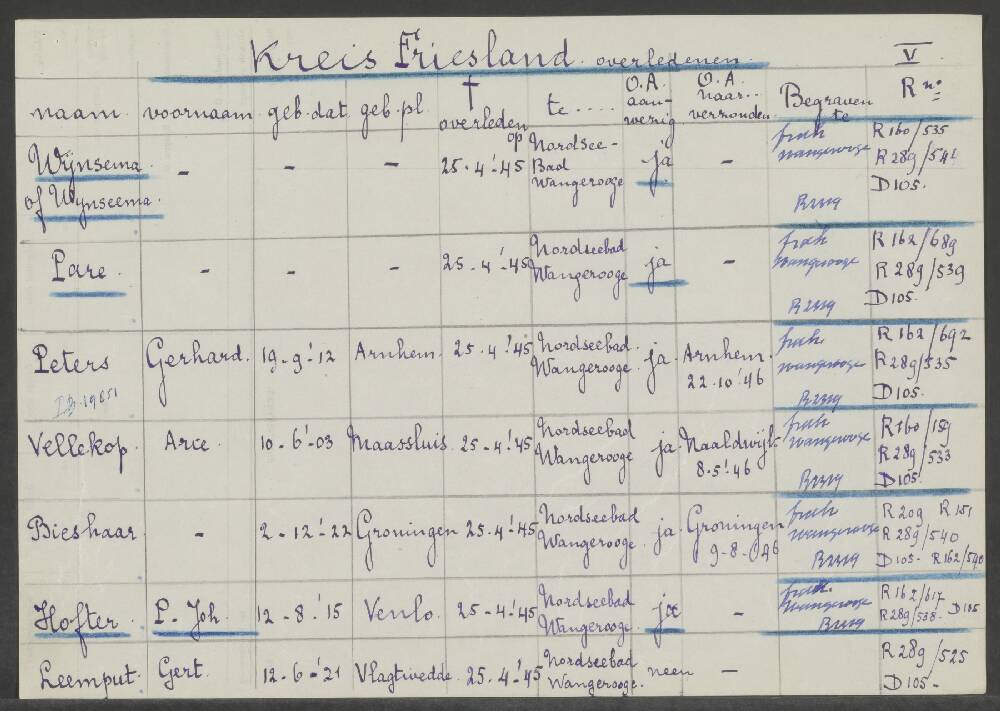 Kreis Friesland. overledenen. V
naam. voornaam. geb. dat. geb. pl. † overleden op te .... O.A. aanwezig O.A. naar.. verzonden. Begraven te R no.
Wijnsema. of Wijnseema. - - - 25.4.'45 Nordsee-Bad Wangerooge ja - Wangerooge R160/535 R289/544 D105.
Pare. - - - 25.4.'45 Nordseebad Wangerooge ja - Wangerooge R162/689 R289/539 D105.
Peters Gerhard. 19-9-'12 Arnhem. 25.4.'45 Nordseebad. Wangerooge. ja. Arnhem. 22.10.'46 Wangerooge R162/692 R289/535 D105.
Vellekop. Arce. 10-6-'03 Maassluis. 25-4.'45 Nordseebad Wangerooge ja. Naaldwijk 8.5.'46 Wangerooge R160/159 R289/533 D105.
Bieshaar - 2-12-'22 Groningen 25.4.'45 Nordseebad Wangerooge. ja. Groningen 9-8-'46 Wangerooge R209 R151 R289/540 D105- R162/540
Hofter. P. Joh. 12-8-'15 Venlo. 25-4-'45 Nordseebad Wangerooge. ja - Wangerooge R162/617 R289/538- D105
Leemput. Gert. 12-6-'21 Vlagtwedde. 25.4-'45 Nordseebad Wangerooge. neen - R289/525 D105-